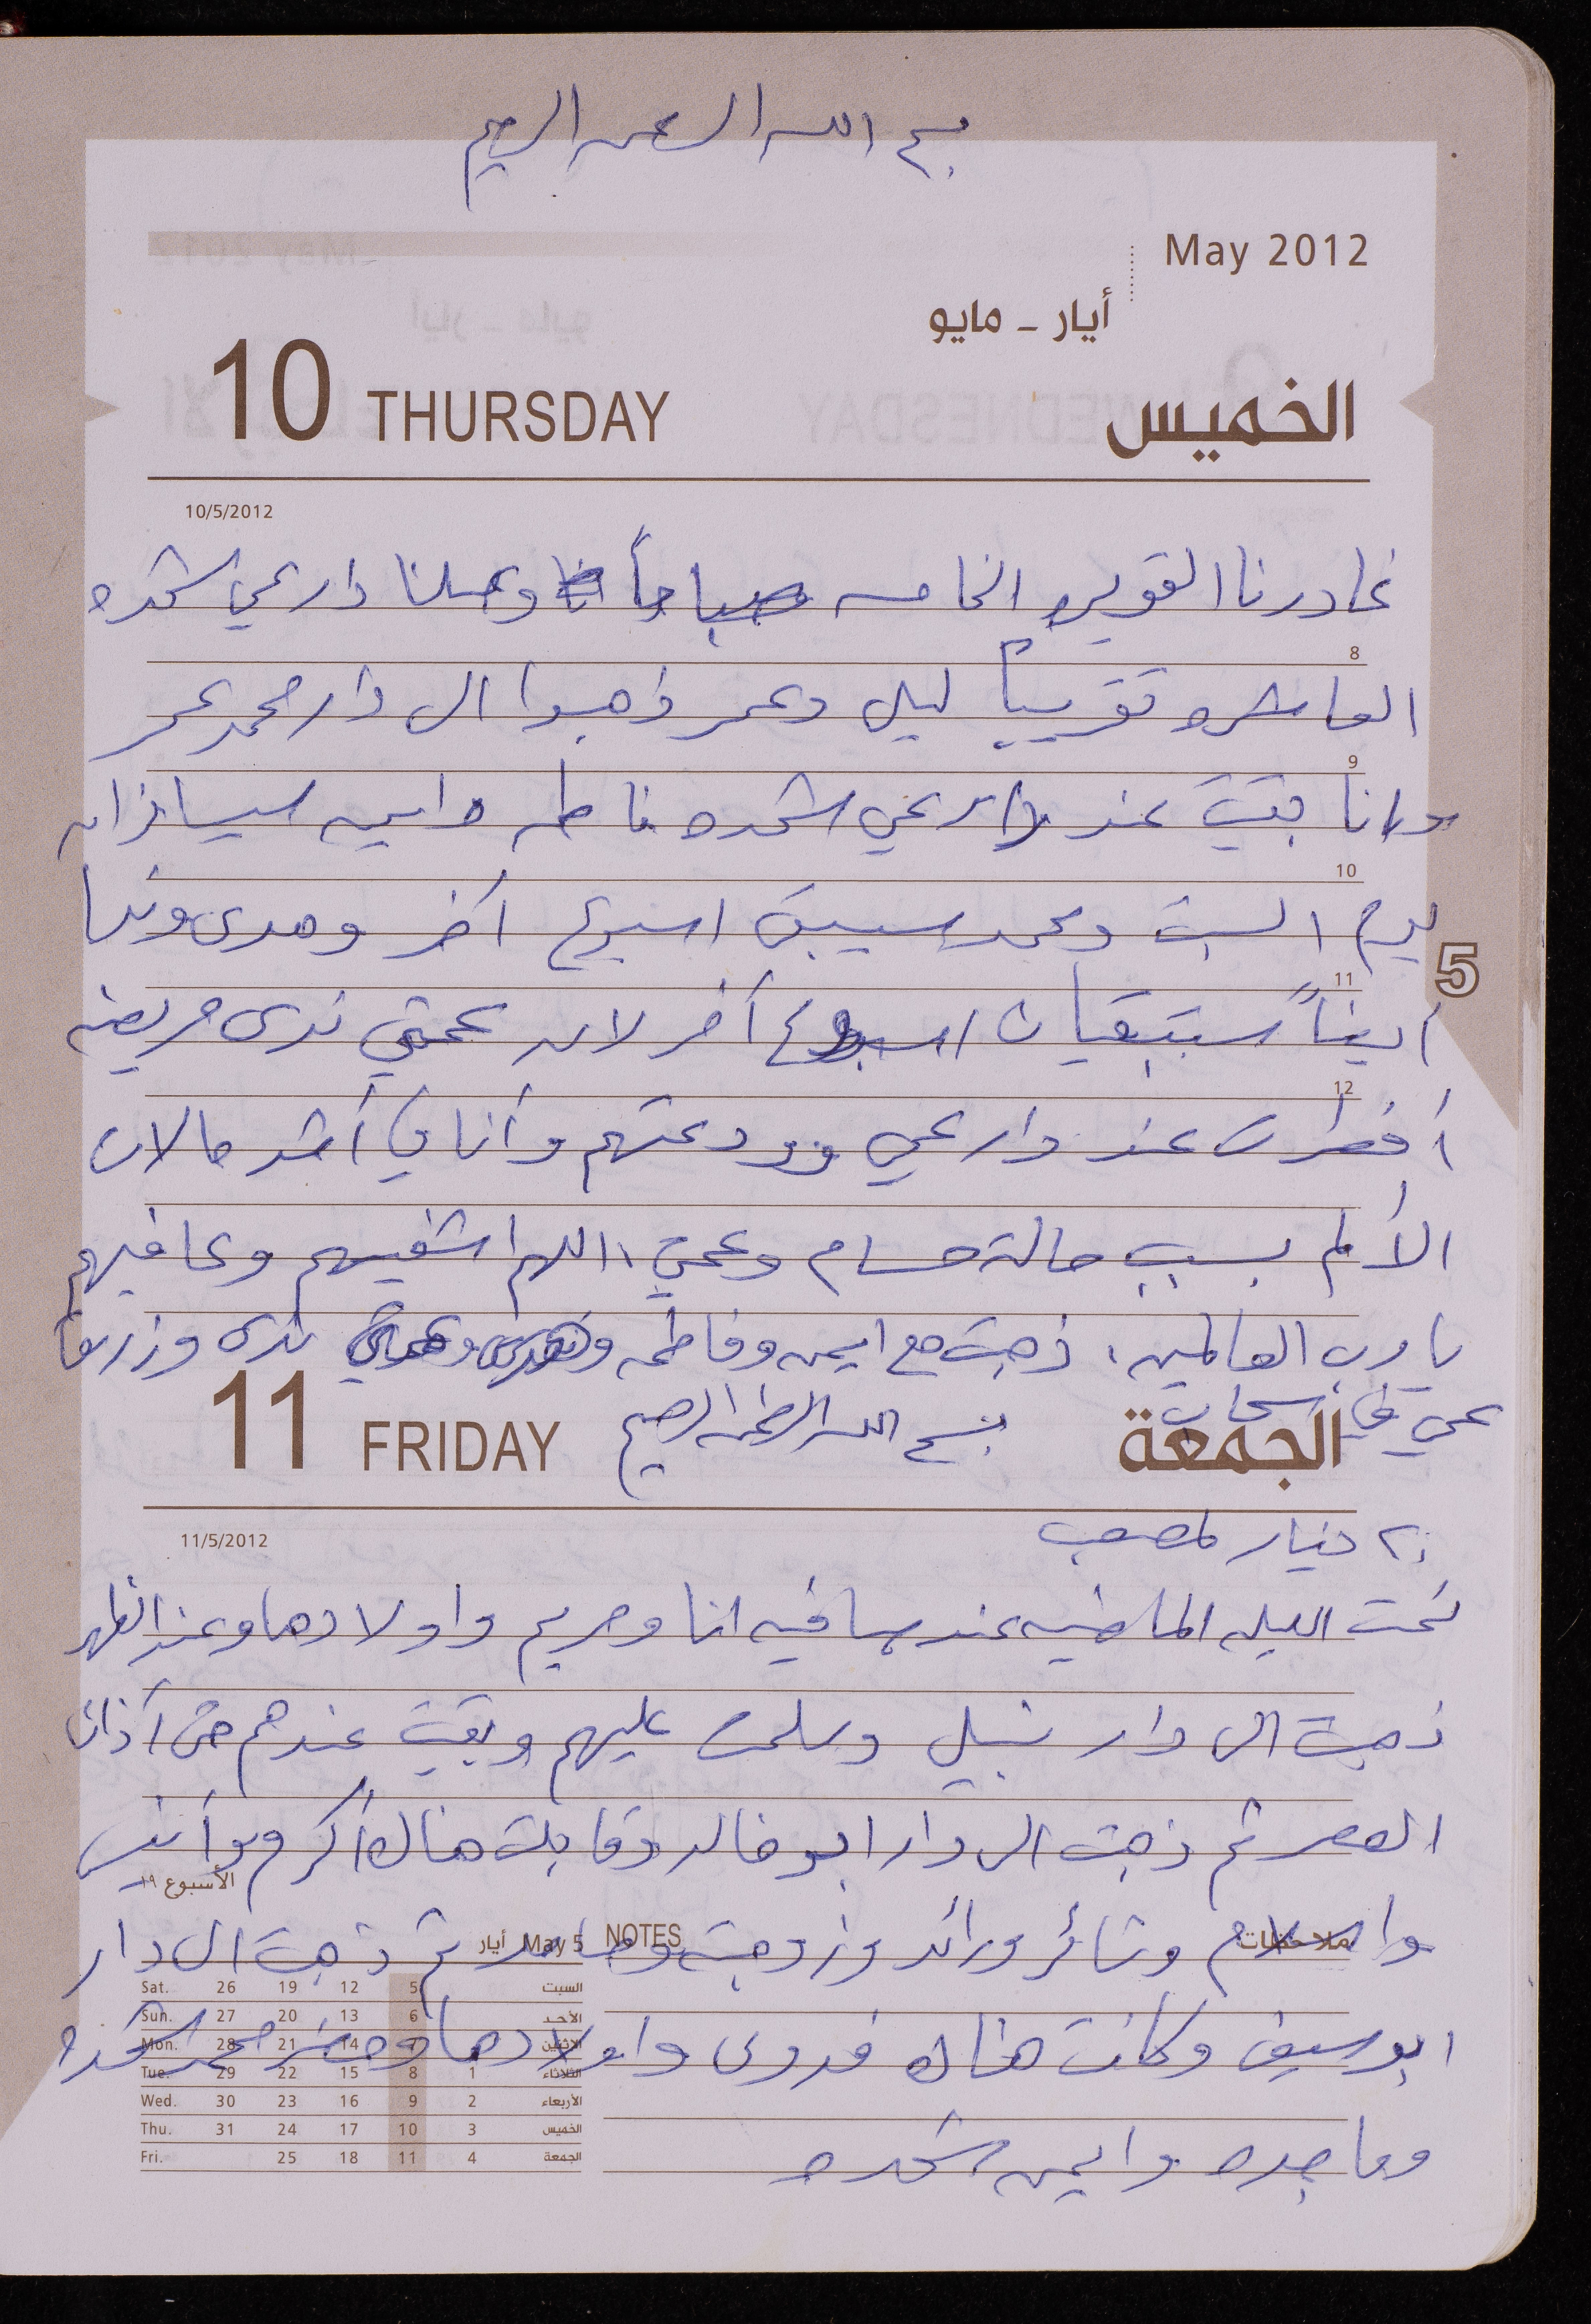 بسم الله الرحمن الرحيم
May 2012
أيار - مايو
10 THURSDAY الخميس
10/5/2012
غادرنا القويره الخامسه صباحاً وصلنا دار عمي شحده
8
العاشره تقريباً ليلى وعمر ذهبوا الى دار محمد عمر
9
وانا بقيت عند دار عمي شحده فاطمه وايمن سيسافران
10
يوم السبت ومحمد سيبقى اسبوع آخر وهدى وندا
5
11
أيضاً ستبقيان اسبوع آخر لان عمتي ندى مريضه
12
أفطرت عند دار عمي وودعتهم وأنا في أشد حالات
الألم بسبب حالة حسام وعمتي، اللهم اشفيهم وعافيهم
يا رب العالمين، ذهبت مع ايمن وفاطمه ندى وزرنا
عمي في سحاب
11 FRIDAY بسم الله الرحمن الرحيم الجمعة
11/5/2012
٢٠ دينار لمصعب
نمت الليله الماضيه عند صافيه انا ومريم واولادها وعند الظهر
ذهبت الى دار نبيل وسلمت عليهم وبقيت عندهم حتى آذان
العصر ثم ذهبت الى دار ابو خالد وقابلت هناك أكرم وأنس
الأسبوع ١٩
واسلام وثائر ورائد وزوجته وحامد ثم ذهبت الى دار
ملاحظات NOTES May 5 أيار
ابو سيف وكانت هناك فدوى واولادها محمد شحده
وماجده وايمن شحده
Sat. 26 19 12 5 السبت
Sun. 27 20 13 6 الأحد
Mon. 28 21 14 7 الاثنين
Tue. 29 22 15 8 1 الثلاثاء
Wed. 30 23 16 9 2 الأربعاء
Thu. 31 24 17 10 3 الخميس
Fri. 25 18 11 4 الجمعة